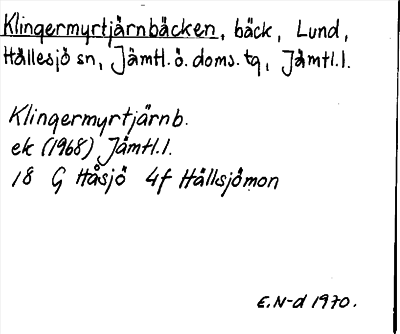 Klingermyrtjärnbäcken, bäck, Lund,
Hällesjö sn, Jämtl.ö. doms. tg, Jämtl.l.
Klingermyrtjärnb.
ek (1968) Jämtl.l.
18 G Håsjö 4f Hällsjömon
E.N-d 1970.